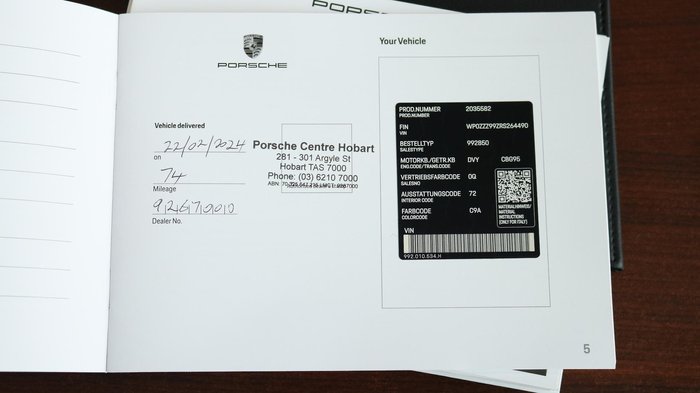 PORSCHE
PORSCHE
Your Vehicle
Vehicle delivered
22/02/2024
on
74
Mileage
9267000
Dealer No.
Porsche Centre Hobart
281 - 301 Argyle St
Hobart TAS 7000
Phone: (03) 6210 7000
PROD.NUMMER 2035582
PROD.NUMBER
FIN WP0ZZZ99ZRS264490
VIN
BESTELLTYP 992850
SALESTYPE
MOTORKB/GETR.KB DVY CBG95
ENG.CODE/TRANS.CODE
VERTRIEBSFARBCODE 0Q
SALESNO
AUSSTATTUNGSCODE 72
INTERIOR CODE
FARBCODE C9A
COLORCODE
MATERIALHINWEIS/
MATERIAL
INSTRUCTIONS
(ONLY FOR ITALY)
VIN
992.010.534.H
5